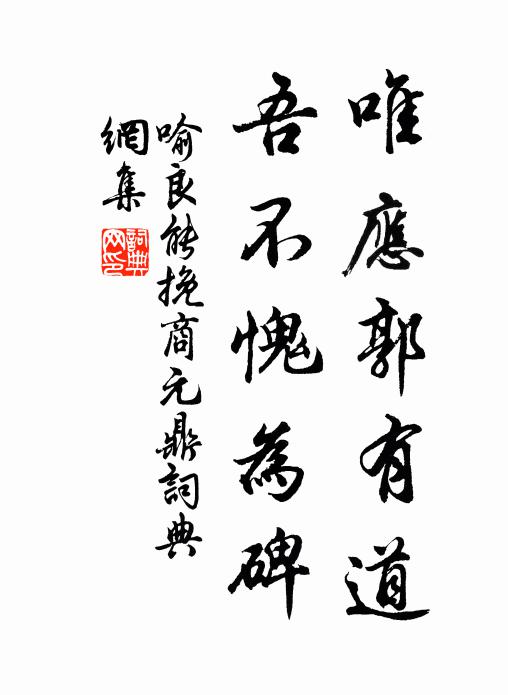 唯應郭有道
吾不愧為碑
喻良能挽商元鼎詞典
網集
詞典
网印